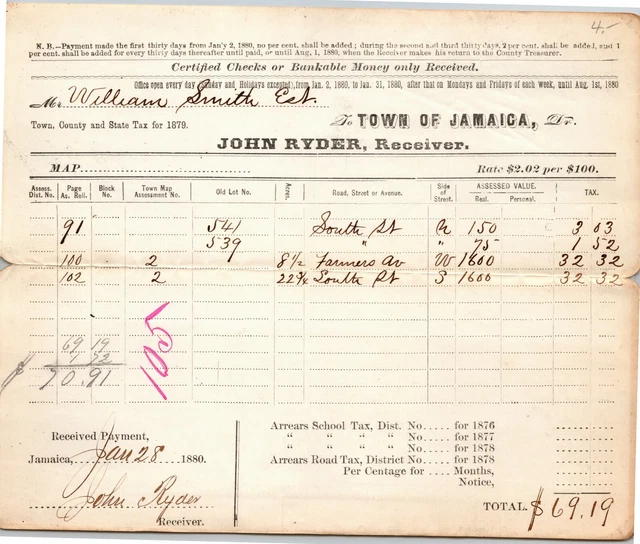 4.-
N. B.—Payment made the first thirty days from Jan'y 2, 1880, no per cent. shall be added; during the second and third thirty days, 2 per cent. shall be added, and 1
per cent. shall be added for every thirty days thereafter until paid, or until Aug. 1, 1880, when the Receiver makes his return to the County Treasurer.
Certified Checks or Bankable Money only Received.
Office open every day (Sunday and Holidays excepted), from Jan. 2, 1880, to Jan. 31, 1880, after that on Mondays and Fridays of each week, until Aug. 1st, 1880
Mr William Smith Est.
Town, County and State Tax for 1879. To TOWN OF JAMAICA, Dr.
JOHN RYDER, Receiver.
MAP Rate $2.02 per $100.
Assess. Dist. No. Page As. Roll. Block No. Town Map Assessment No. Old Lot No. Acres. Road, Street or Avenue. Side of Street. ASSESSED VALUE. Real. Personal. TAX.
91 541 South St N 150 3 03
539 " " 75 1 52
100 2 8½ Farmers Av W 1600 32 32
102 2 22¾ South St S 1600 32 32
105
69 19
1 72
$ 70.91
Arrears School Tax, Dist. No. for 1876
" " " " for 1877
" " " " for 1878
Arrears Road Tax, District No. for 1878
Per Centage for Months,
Notice,
TOTAL. $69.19
Received Payment,
Jamaica, Jan 28 1880.
John Ryder
Receiver.